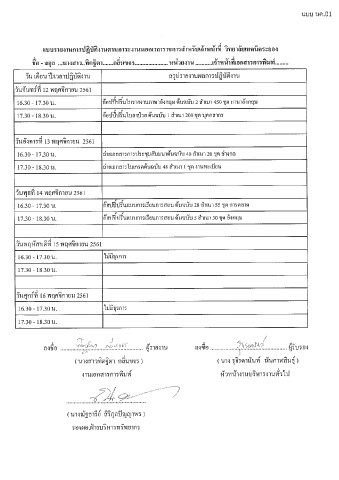 แบบ นศ.01
แบบรายงานการปฏิบัติงานตามภาระงานนอกเวลาราชการสำหรับเจ้าหน้าที่ วิทยาลัยเทคนิคระยอง
ชื่อ - สกุล ...นางสาวพิชฐิตา......กลิ่นขจร............... หน่วยงาน ..........เจ้าหน้าที่เอกสารการพิมพ์........
วัน เดือน ปี/เวลาปฏิบัติงาน สรุปรายงานผลการปฏิบัติงาน
วันจันทร์ที่ 12 พฤศจิกายน 2561
16.30 - 17.30 น. ก๊อปปี้ปริ้นใบรายงานภาษาอังกฤษ ต้นฉบับ 2 สำเนา 450 ชุด ภาษาอังกฤษ
17.30 - 18.30 น. ก๊อปปี้ปริ้นใบลาป่วย ต้นฉบับ 1 สำเนา 200 ชุด บุคลากร
วันอังคารที่ 13 พฤศจิกายน 2561
16.30 - 17.30 น. ถ่ายเอกสารการประชุมสัมมนาต้นฉบับ 40 สำเนา 20 ชุด
17.30 - 18.30 น. ถ่ายเอกสารใบเกรดต้นฉบับ 40 สำเนา 1 ชุด งานทะเบียน
วันพุธที่ 14 พฤศจิกายน 2561
16.30 - 17.30 น. ก๊อปปี้ปริ้นเอกสารเรียนการสอน ต้นฉบับ 20 สำเนา 55 ชุด การตลาด
17.30 - 18.30 น. ก๊อปปี้ปริ้นเอกสารเรียนการสอน ต้นฉบับ 5 สำเนา 30 ชุด อังกฤษ
วันพฤหัสบดีที่ 15 พฤศจิกายน 2561
16.30 - 17.30 น. ไม่มีธุรการ
17.30 - 18.30 น.
วันศุกร์ที่ 16 พฤศจิกายน 2561
16.30 - 17.30 น. ไม่มีธุรการ
17.30 - 18.30 น.
ลงชื่อ ผู้รายงาน ลงชื่อ ผู้รับรอง
( นางสาวพิชฐิตา กลิ่นขจร )
งานเอกสารการพิมพ์ หัวหน้างานบริหารงานทั่วไป
รองผอ.ฝ่ายบริหารทรัพยากร